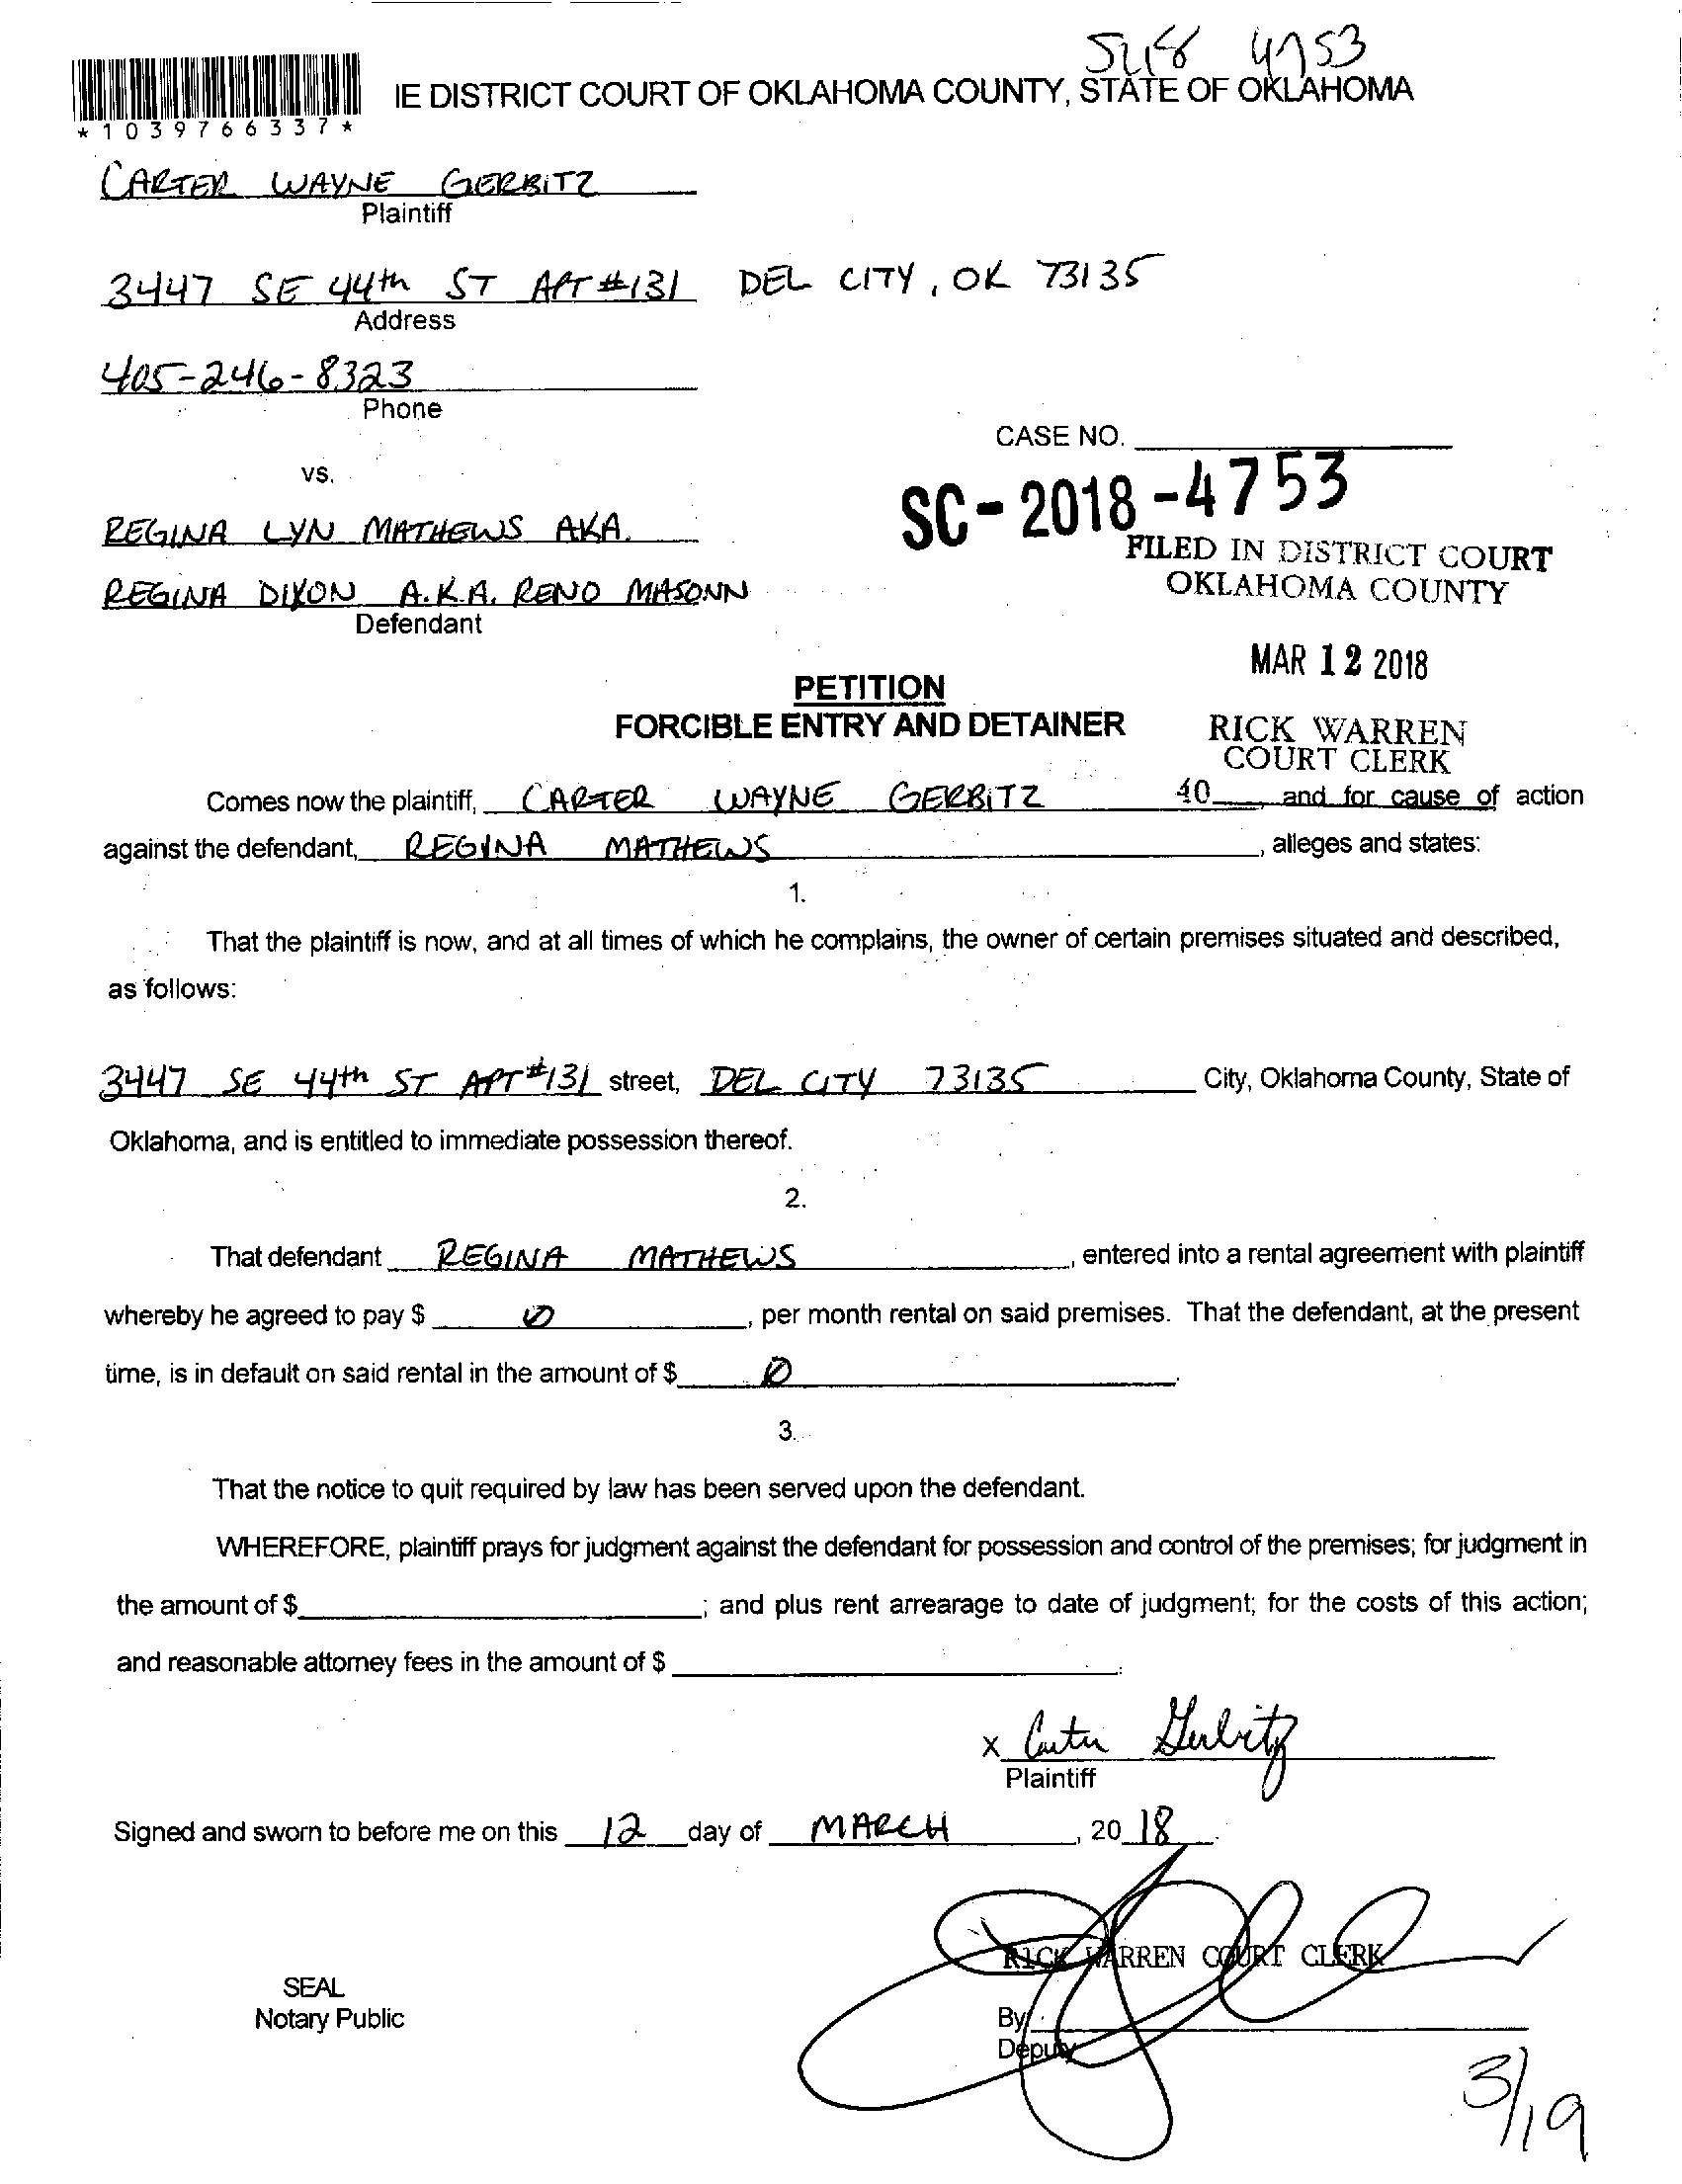 4753
IE DISTRICT COURT OF OKLAHOMA COUNTY, STATE OF OKLAHOMA
*1039766337*
CARTER WAYNE GERBITZ
Plaintiff
3447 SE 44th ST APT #131 DEL CITY, OK 73135
Address
405-246-8323
Phone
CASE NO.
vs.
SC-2018-4753
REGINA LYN MATHEWS AKA.
FILED IN DISTRICT COURT
OKLAHOMA COUNTY
REGINA DIXON A.K.A. RENO MASONN
Defendant
MAR 12 2018
PETITION
FORCIBLE ENTRY AND DETAINER
RICK WARREN
COURT CLERK
Comes now the plaintiff, CARTER WAYNE GERBITZ 40 , and for cause of action
against the defendant, REGINA MATHEWS , alleges and states:
1.
That the plaintiff is now, and at all times of which he complains, the owner of certain premises situated and described,
as follows:
3447 SE 44th ST APT #131 street, DEL CITY 73135 City, Oklahoma County, State of
Oklahoma, and is entitled to immediate possession thereof.
2.
That defendant REGINA MATHEWS , entered into a rental agreement with plaintiff
whereby he agreed to pay $ 0 , per month rental on said premises. That the defendant, at the present
time, is in default on said rental in the amount of $ 0 .
3.
That the notice to quit required by law has been served upon the defendant.
WHEREFORE, plaintiff prays for judgment against the defendant for possession and control of the premises; for judgment in
the amount of $ ; and plus rent arrearage to date of judgment; for the costs of this action;
and reasonable attorney fees in the amount of $ .
x Carter Gerbitz
Plaintiff
Signed and sworn to before me on this 12 day of MARCH , 20 18 .
RICK WARREN COURT CLERK
SEAL
Notary Public
By
Deputy
3/19